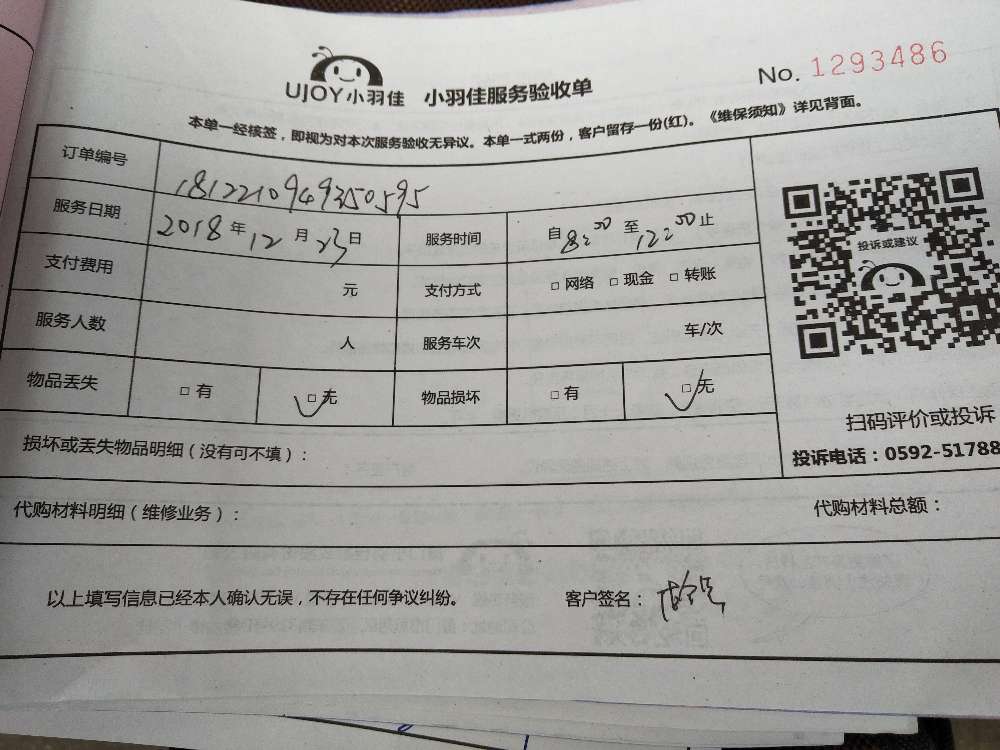 UJOY小羽佳 小羽佳服务验收单 No. 1293486
本单一经核签，即视为对本次服务验收无异议。本单一式两份，客户留存一份(红)。《维保须知》详见背面。
订单编号 1812210949350595
服务日期 2018年12月23日 服务时间 自8:00至12:00止
投诉或建议
支付费用 元 支付方式 □网络 □现金 □转账
服务人数 人 服务车次 车/次
物品丢失 □有 □无 物品损坏 □有 □无
扫码评价或投诉
投诉电话：0592-51788
损坏或丢失物品明细（没有可不填）：
代购材料明细（维修业务）： 代购材料总额：
以上填写信息已经本人确认无误，不存在任何争议纠纷。 客户签名：